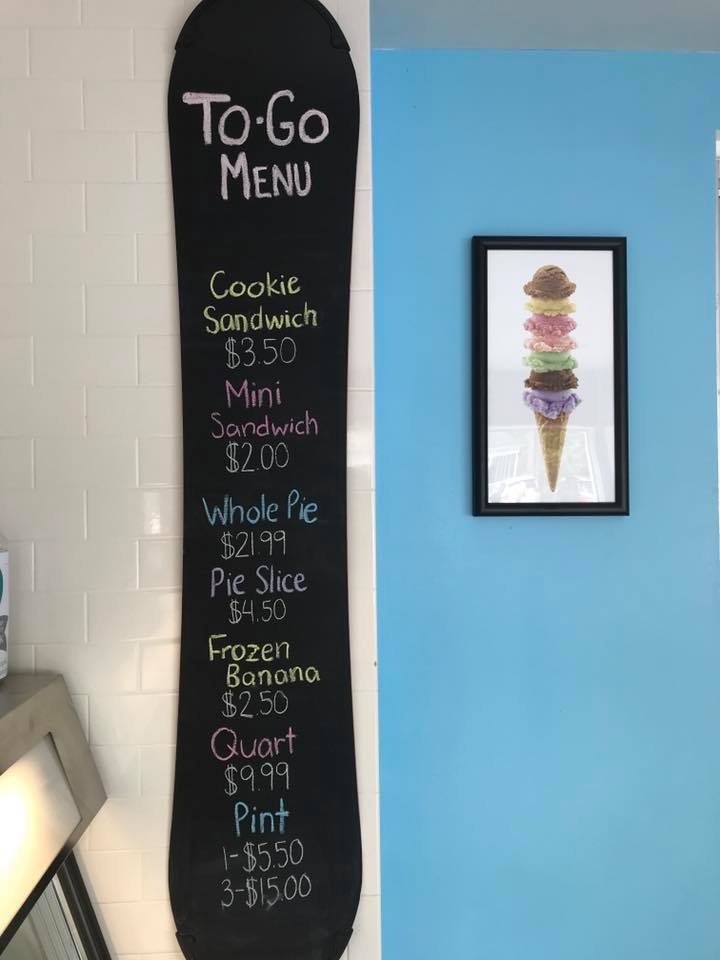 To·Go
Menu
Cookie
Sandwich
$3.50
Mini
Sandwich
$2.00
Whole Pie
$21.99
Pie Slice
$4.50
Frozen
Banana
$2.50
Quart
$9.99
Pint
1-$5.50
3-$15.00